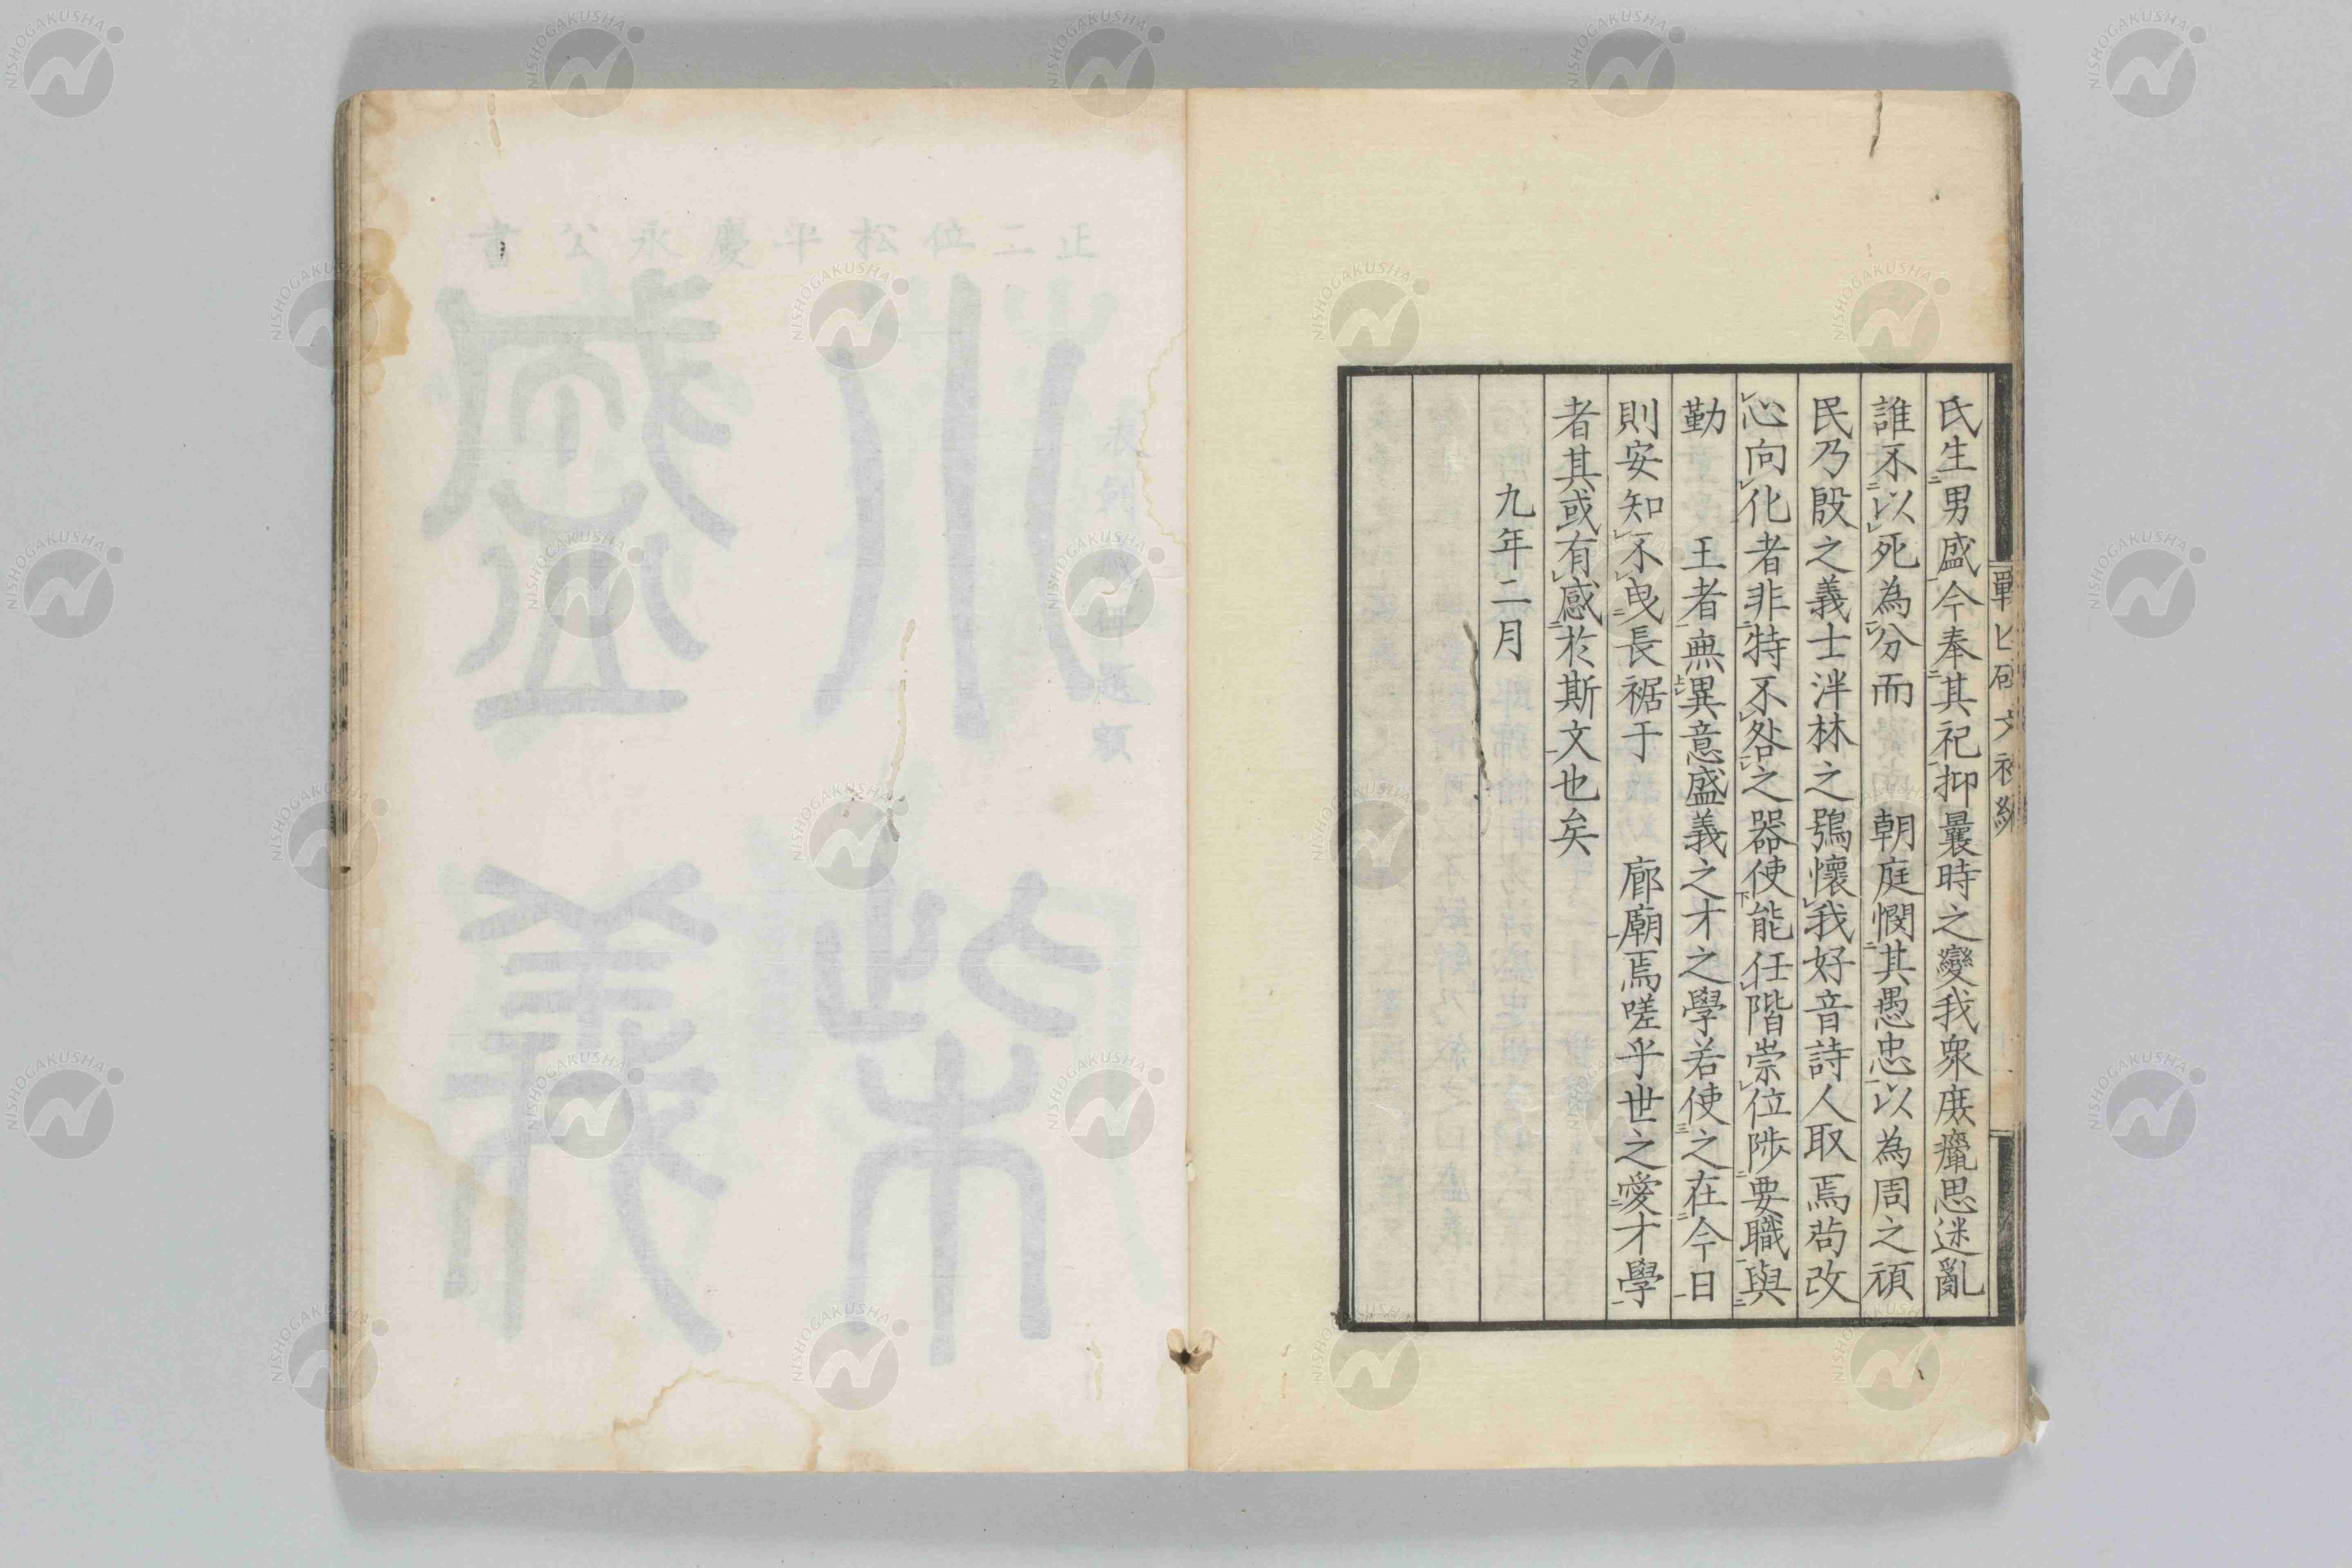 氏生男盛今奉其祀抑曩時之變我衆庶癰思迷亂
誰不以死為分而 朝庭憫其愚忠以為周之頑
民乃殷之義士泮林之鴞懷我好音詩人取焉苟改
心向化者非特不咎之器使能任階崇位陟要職與
勤 王者無異意盛義之才之學若使之在今日
則安知不曳長裾于 廊廟焉嗟乎世之愛才學
者其或有感於斯文也矣
九年二月
正二位松平慶永公書
NISHOGAKUSHA